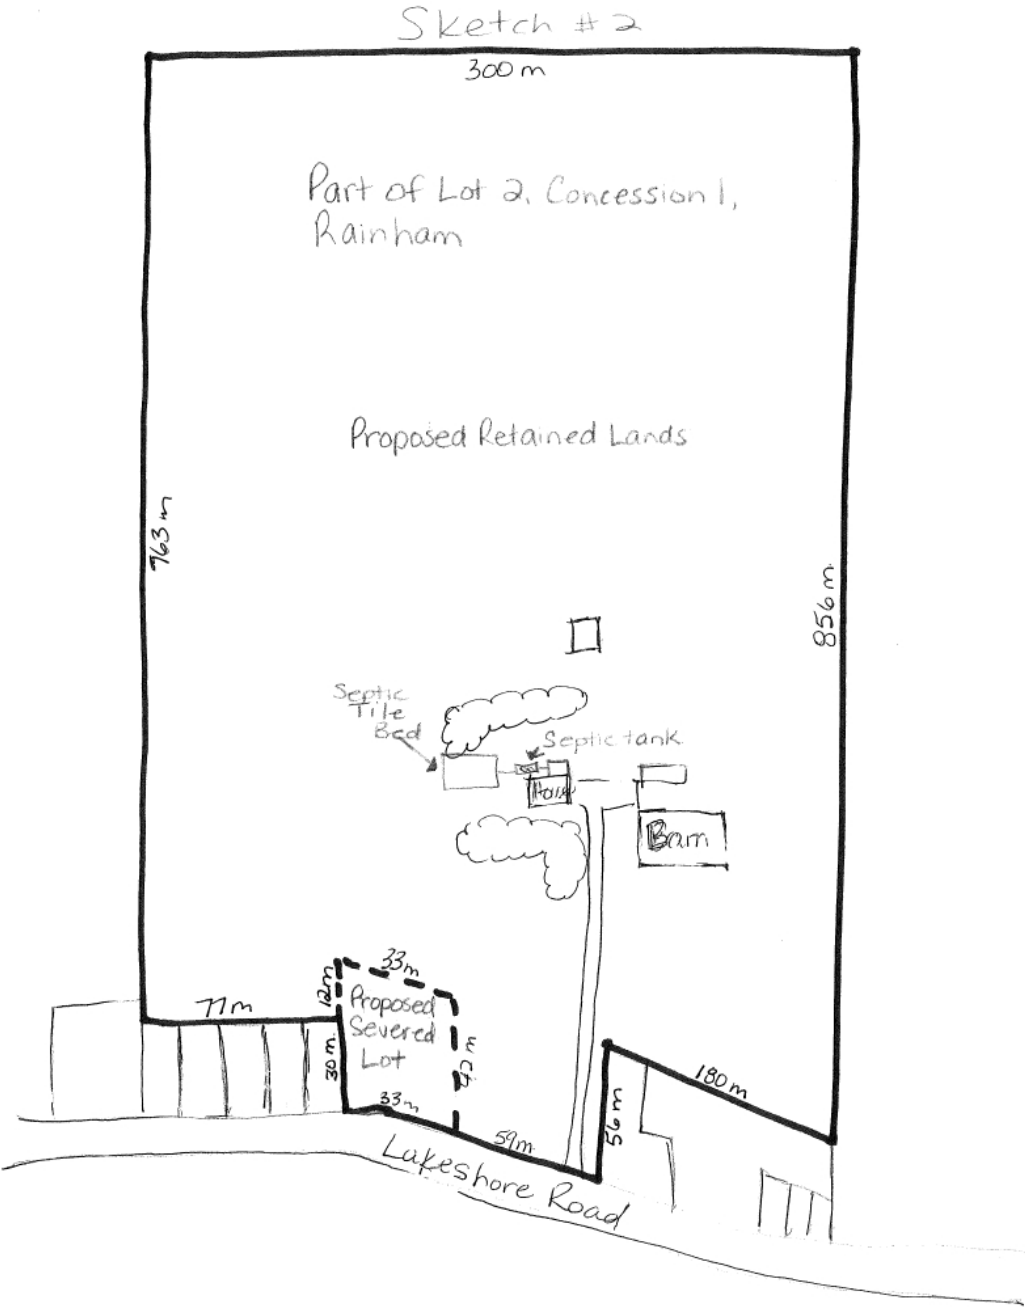 Sketch # 2
300 m
Part of Lot 2, Concession 1,
Rainham
Proposed Retained Lands
763 m
856 m
Septic
Tile
Bed
Septic tank
House
Barn
33m
12m
77m
Proposed
Severed
Lot
30m
42 m
33m
59m
56 m
180 m
Lakeshore Road